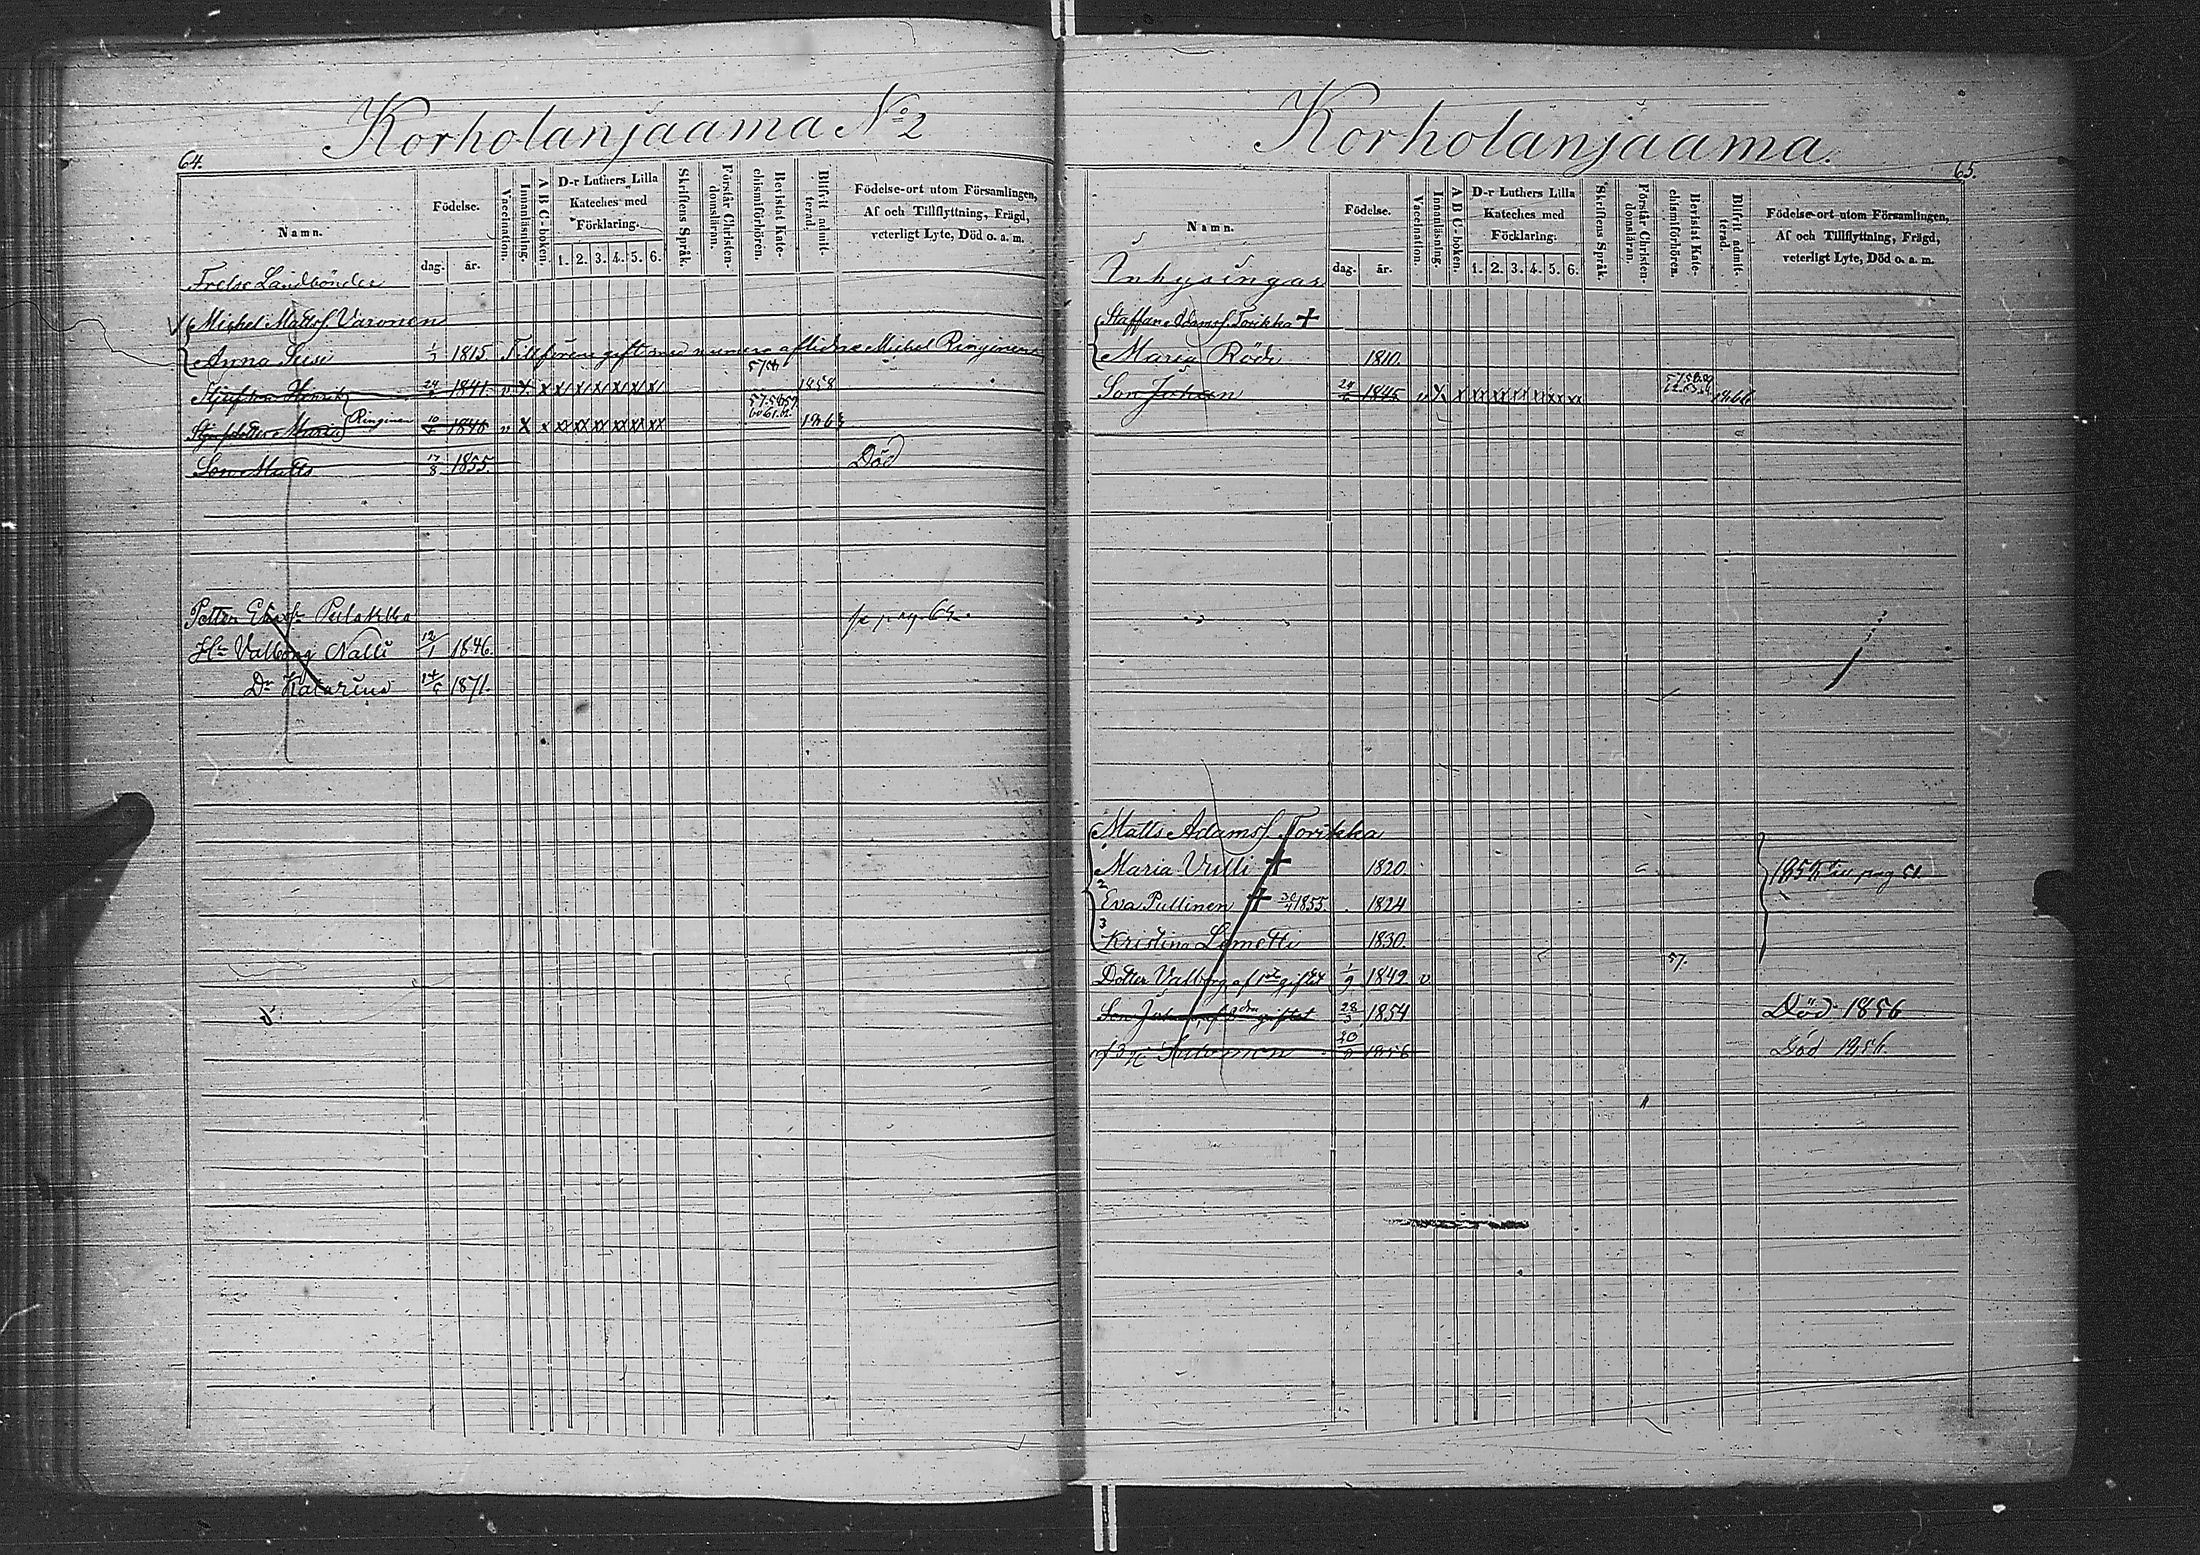 Korholanjaama No 2
64.
Namn.
Födelse.
dag.
år.
Vaccination.
Innanläsning.
A B C-boken.
D-r Luthers Lilla
Kateches med
Förklaring.
1. 2. 3. 4. 5. 6.
Skriftens Språk.
Förstår Christen-
domsläran.
Bevistat Kate-
chismiförhören.
Blifvit admit-
terad.
Födelse-ort utom Församlingen,
Af och Tillflyttning, Frägd,
veterligt Lyte, Död o. a. m.
Frelse Landbönder
Michel Mattsf. Varonen
Anna Susi 1815 Tillförene gift med numera aflidne Michel Ringinen
Henrik 24 1841. v x x x x x x x x 1858
Maria Ringinen 10 1846 v x x xx xx xx xx xx xx 57.58.59 60.61.62. 186
Son Matts 17/8 1855 Död
Petter Pulakka pag. 62.
Hu Valborg Nalli 12/1 1846.
Dr Katarina 14/6 1871.
Korholanjaama.
65.
Namn.
Födelse.
dag.
år.
Vaccination.
Innanläsning.
A B C-boken.
D-r Luthers Lilla
Kateches med
Förklaring.
1. 2. 3. 4. 5. 6.
Skriftens Språk.
Förstår Christen-
domsläran.
Bevistat Kate-
chismiförhören.
Blifvit admit-
terad.
Födelse-ort utom Församlingen,
Af och Tillflyttning, Frägd,
veterligt Lyte, Död o. a. m.
Inhysingar
Staffan Adamsf. Torikka +
Maria Rödi 1810.
Son Johan 24 1845 v x x xx xx xx xx xx xx
Matts Adamsf. Torikka
Maria Vulli + 1820.
2 Eva Pullinen + 1855. 1824
3 Kristina Lemetti 1830.
57.
Dotter Valborg af 1sta giftet 1/9 1849. v
Son Johan af 2dra giftet 28/3 1854 Död 1856
af 3 Salomon 1856 Död 1856.